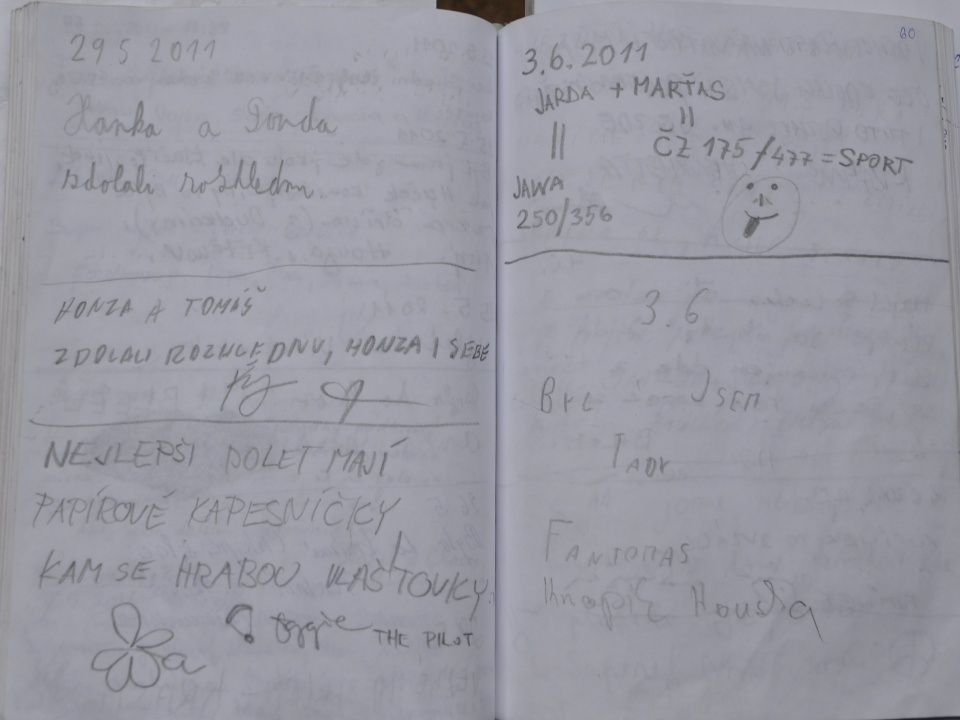 29 5 2011
Hanka a Jonda
zdolali rozhlednu
HONZA A TOMÁŠ
ZDOLALI ROZHLEDNU, HONZA I SEBE
NEJLEPŠI DOLET MAJÍ
PAPÍROVÉ KAPESNÍČKY
KAM SE HRABOU VLAŠTOVKY.
THE PILOT
60
3.6.2011
JARDA + MARŤAS
ČZ 175/477 = SPORT
JAWA
250/356
3.6
BYL JSEM
TADY
FANTOMAS
Houska